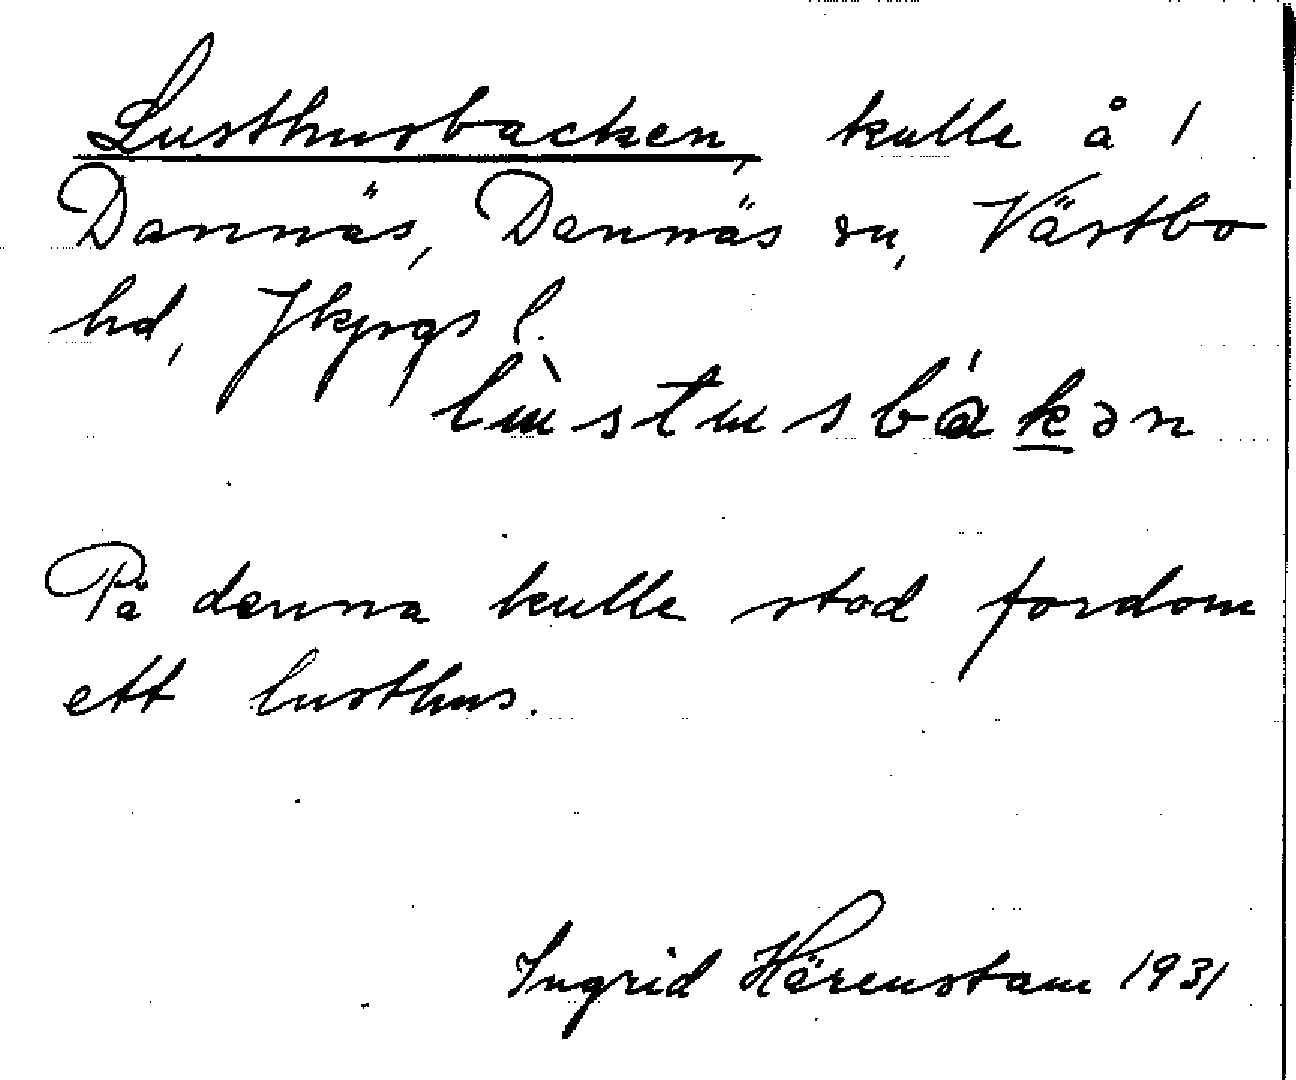 Lusthusbacken, kulle å 1
Dannäs, Dannäs sn, Västbo
hd, Jkpgs l.
lùstusbákən
På denna kulle stod fordom
ett lusthus.
Ingrid Härenstam 1931